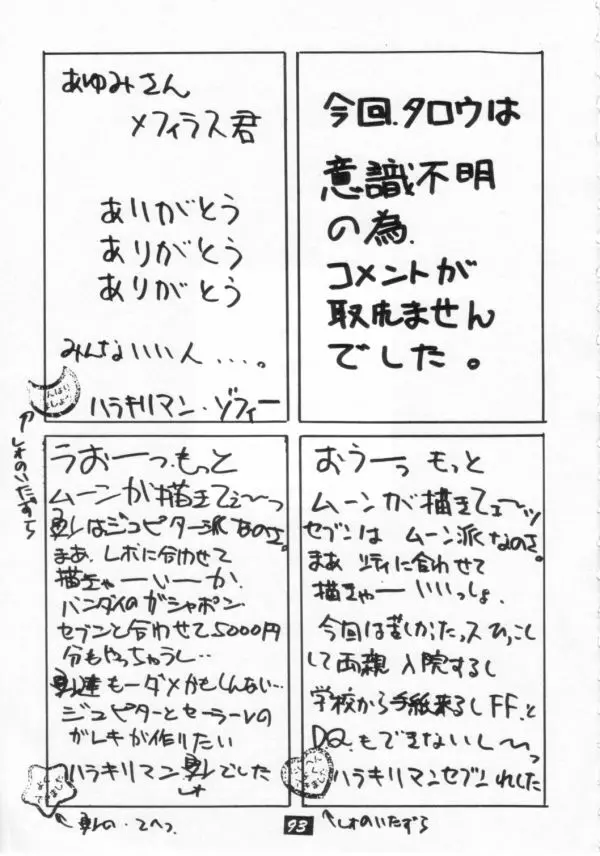 あゆみさん
メフィラス君
ありがとう
ありがとう
ありがとう
みんないい人...。
ハラキリマン・ゾフィー
今回.タロウは
意識不明
の為.
コメントが
取れません
でした。
うおーっ.もっと
ムーンが描きてぇ〜っ
はジュピター派なのさ。
まあ.レボに合わせて
描きゃーいーか.
バンダイのガシャポン
セブンと合わせて5000円
分もやっちゃうし..
達もーダメかもしんない...
ジュピターとセーラーVの
ガレキが作りたい
ハラキリマン
でした
おうーっ もっと
ムーンが描きてェ〜ッ
セブンは ムーン派なのさ。
まあ シティに合わせて
描きゃー いいっしょ.
今回は苦しかったっス ひっこし
して両親 入院するし
学校から手紙来るしFF.と
DQ.もできないし〜っ
ハラキリマンセブンれした
93